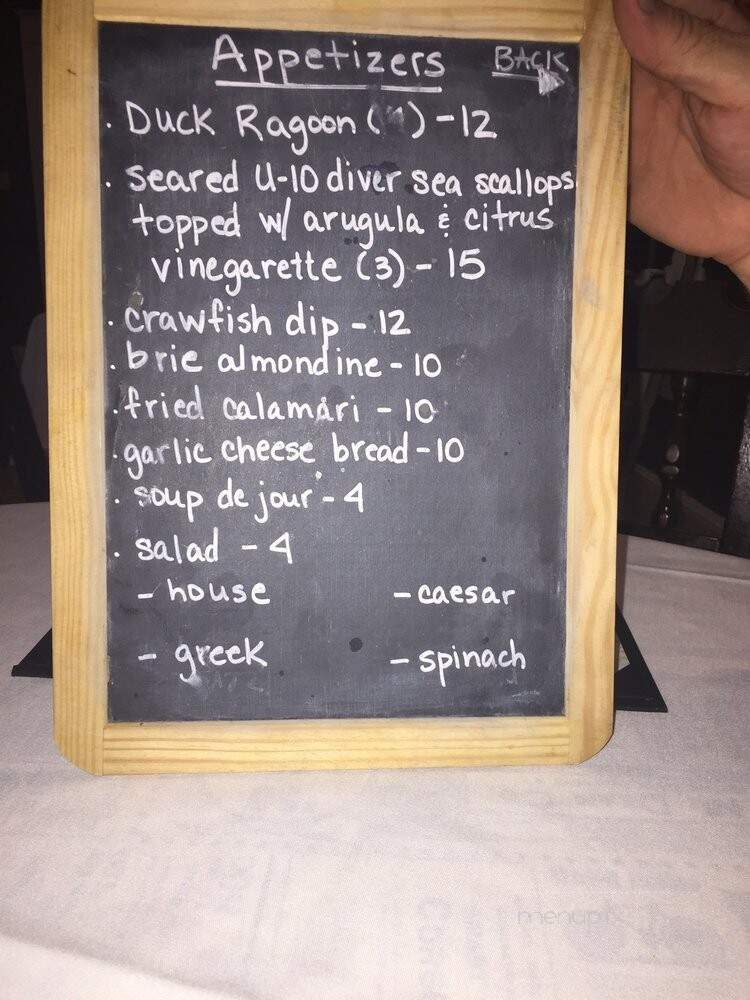 Appetizers BACK
· Duck Ragoon ( ) - 12
· seared U-10 diver sea scallops
topped w/ arugula & citrus
vinegarette (3) - 15
· crawfish dip - 12
· brie almondine - 10
· fried calamari - 10
· garlic cheese bread - 10
· soup de jour - 4
· salad - 4
- house - caesar
- greek - spinach
menupix